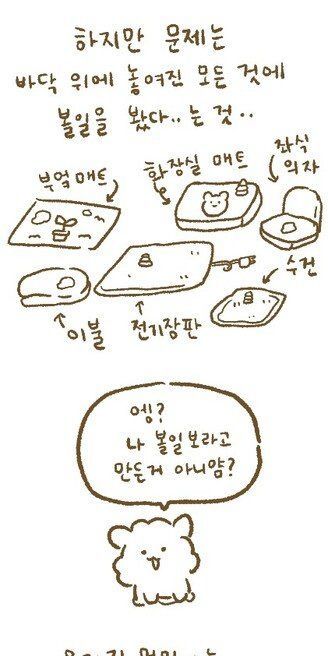 하지만 문제는
바닥 위에 놓여진 모든 것에
볼일을 봤다..는 것..
좌식
의자
화장실 매트
부엌매트
수건
이불
전기장판
엥?
나 볼일보라고
만든거 아니얌?